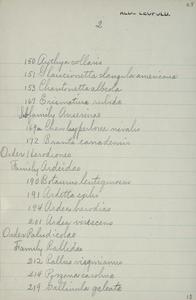 ALDO LEOPOLD.
2
150 Aythya collaris
151 Glaucionetta clangula americana
153 Charitonetta albeola
167 Erismatura rubida
Subfamily Anserinae
169a Chen hyperborea nivalis
172 Branta canadensis
Order Herodiones
Family Ardeidae
190 Botaurus lentiginosus
191 Ardetta exilis
194 Ardea herodias
201 Ardea virescens
Order Paludicolae
Family Rallidae
212 Rallus virginianus
214 Porzana carolina
219 Gallinula galeata